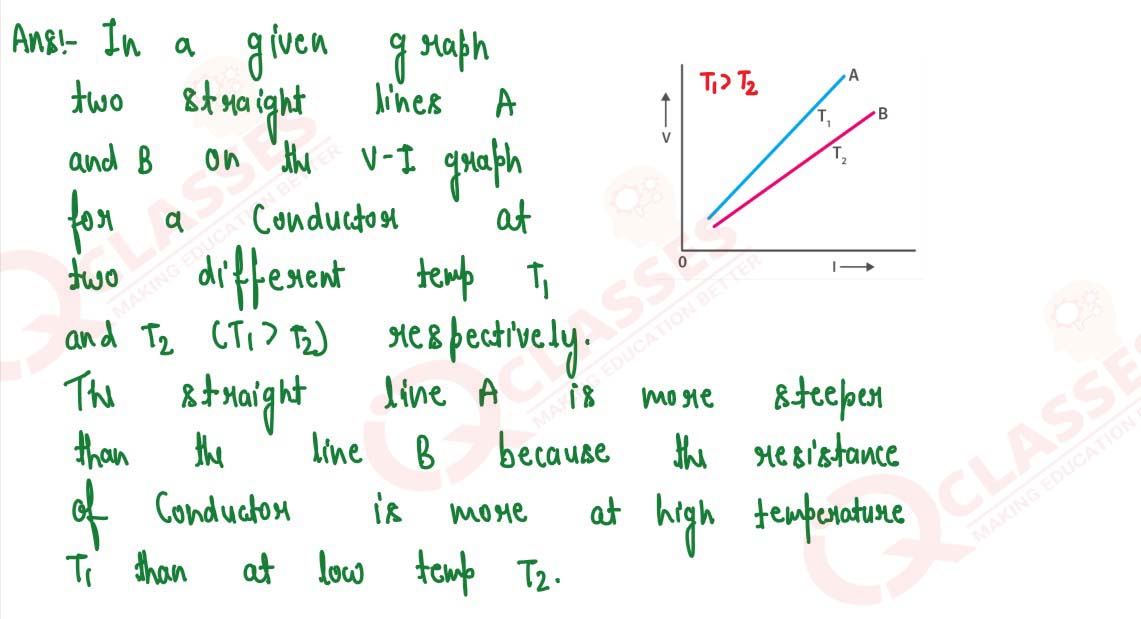 Ans:- In a given graph
two straight lines A
and B on the V-I graph
for a Conductor at
two different temp T₁
and T₂ (T₁ > T₂) respectively.
The straight line A is more steeper
than the line B because the resistance
of Conductor is more at high temperature
T₁ than at low temp T₂.
T₁ > T₂
A
B
T₁
T₂
V
0
I
QCLASSES
MAKING EDUCATION BETTER
QCLASSES
MAKING EDUCATION BETTER
QCLASSES
MAKING EDUCATION